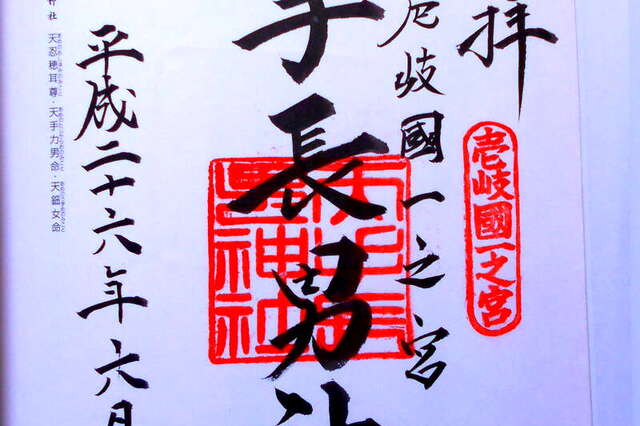 拝
壱岐國一之宮
壱岐國一之宮
手長男神
天手長男神社
平成二十六年六月
神社 天忍穂耳尊・天手力男命・天鈿女命